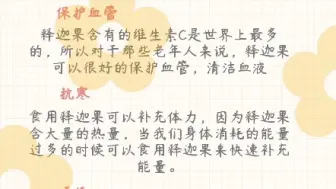 保护血管
释迦果含有的维生素C是世界上最多
的，所以对于那些老年人来说，释迦果
可以很好的保护血管，清洁血液
抗寒
食用释迦果可以补充体力，因为释迦果
含大量的热量，当我们身体消耗的能量
过多的时候可以食用释迦果来快速补充
能量。